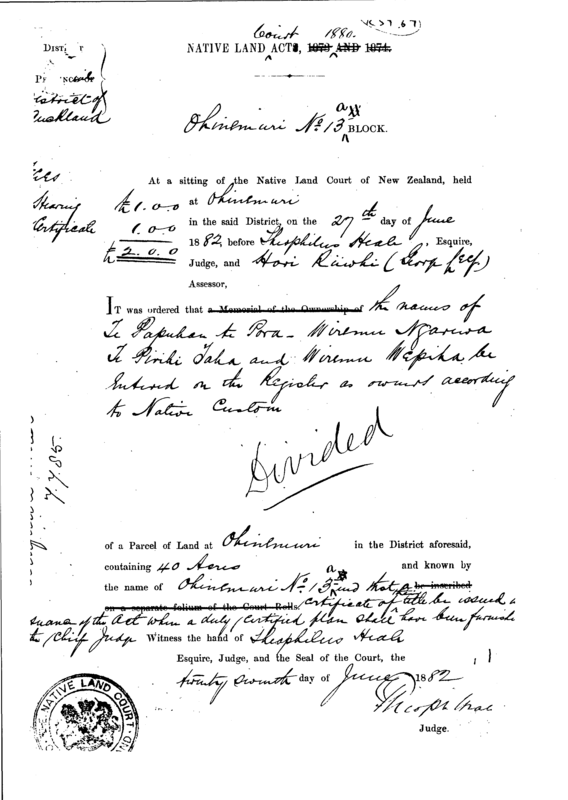 Court 1880.
NATIVE LAND ACTS, 1873 AND 1874.
District of
Auckland
Ohinemuri No 13 a BLOCK.
At a sitting of the Native Land Court of New Zealand, held
Hearing £1.0.0 at Ohinemuri
Certificate 1.0.0 in the said District, on the 27th day of June
£2.0.0 1882, before Theophilus Heale, Esquire,
Judge, and Hori
Assessor,
IT was ordered that a Memorial of the Ownership of the names of
Te Pora - Wiremu
Te Piriki Taha and Wiremu be
Entered on the Register as owners according
to Native Custom
Divided
of a Parcel of Land at Ohinemuri in the District aforesaid,
containing 40 Acres and known by
the name of Ohinemuri No 13 a and that a be inscribed
on a separate folium of the Court Rolls Certificate of title be issued
suance of the Act when a duly certified plan shall have been furnish
the Chief Judge Witness the hand of Theophilus Heale
Esquire, Judge, and the Seal of the Court, the
twenty seventh day of June 1882
Judge.
NATIVE LAND COURT